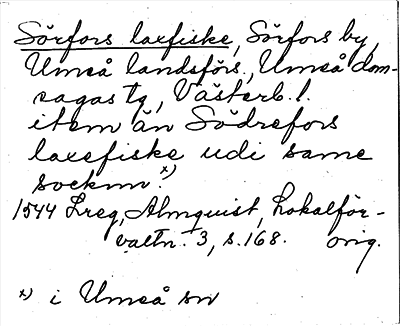 Sörfors laxfiske, Sörfors by,
Umeå landsförs., Umeå dom-
sagas tg, Västerb. l.
item än Södrefors
laxefiske udi same
socknn. x)
1544 Lreg, Almquist, Lokalför-
valtn. 3, s. 168. orig.
x) i Umeå sn